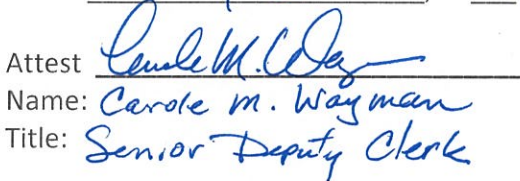 Attest Carole M. Way
Name: Carole M. Wayman
Title: Senior Deputy Clerk